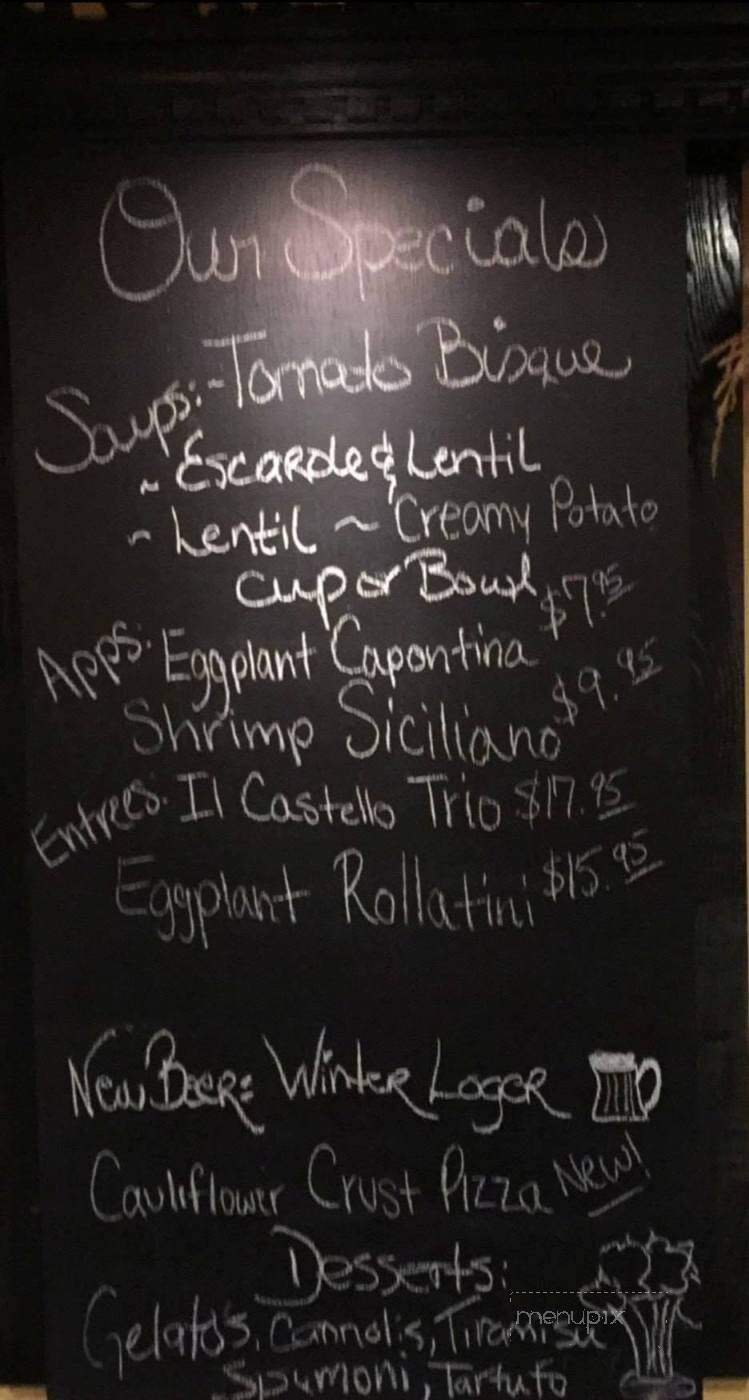 Our Specials
Soups: - Tomato Bisque
~ Escarole & Lentil
~ Lentil ~ Creamy Potato
Cup or Bowl
Apps: Eggplant Capontina $7.95
Shrimp Siciliano $9.95
Entrees: Il Castello Trio $17.95
Eggplant Rollatini $15.95
New Beer: Winter Lager
Cauliflower Crust Pizza New!
Desserts:
Gelato's, Cannolis, Tiramisu
Spumoni, Tartufo
menupix